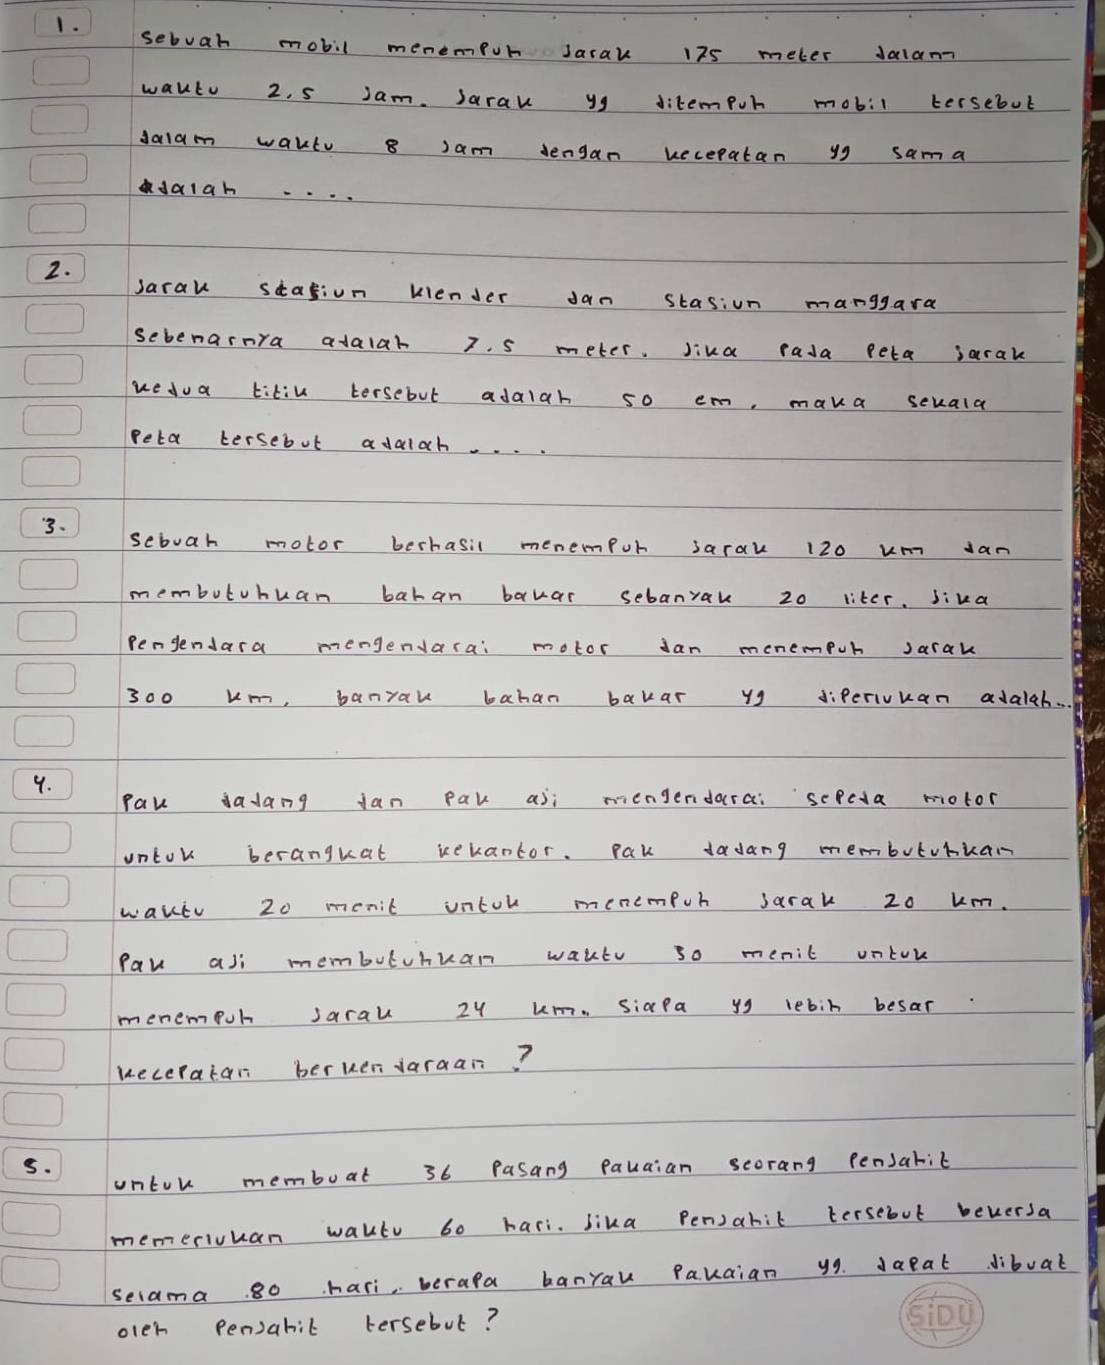 1. Sebuah mobil menempuh jarak 175 meter dalam
waktu 2,5 jam. Jarak yg ditempuh mobil tersebut
dalam waktu 8 jam dengan kecepatan yg sama
adalah ....
2. Jarak stasiun klender dan stasiun manggara
sebenarnya adalah 7.5 meter. Jika pada peta jarak
kedua titik tersebut adalah 50 cm, maka sekala
peta tersebut adalah ....
3. Sebuah motor berhasil menempuh jarak 120 km dan
membutuhkan bahan bakar sebanyak 20 liter. Jika
pengendara mengendarai motor dan menempuh jarak
300 km, banyak bahan bakar yg diperlukan adalah...
4. Pak dadang dan pak aji mengendarai sepeda motor
untuk berangkat kekantor. Pak dadang membutuhkan
waktu 20 menit untuk menempuh jarak 20 km.
Pak aji membutuhkan waktu 30 menit untuk
menempuh jarak 24 km. Siapa yg lebih besar
kecepatan berkendaraan ?
5. untuk membuat 36 pasang pakaian seorang penjahit
memerlukan waktu 60 hari. Jika penjahit tersebut bekerja
selama 80 hari, berapa banyak pakaian yg dapat dibuat
oleh penjahit tersebut ?
SiDU